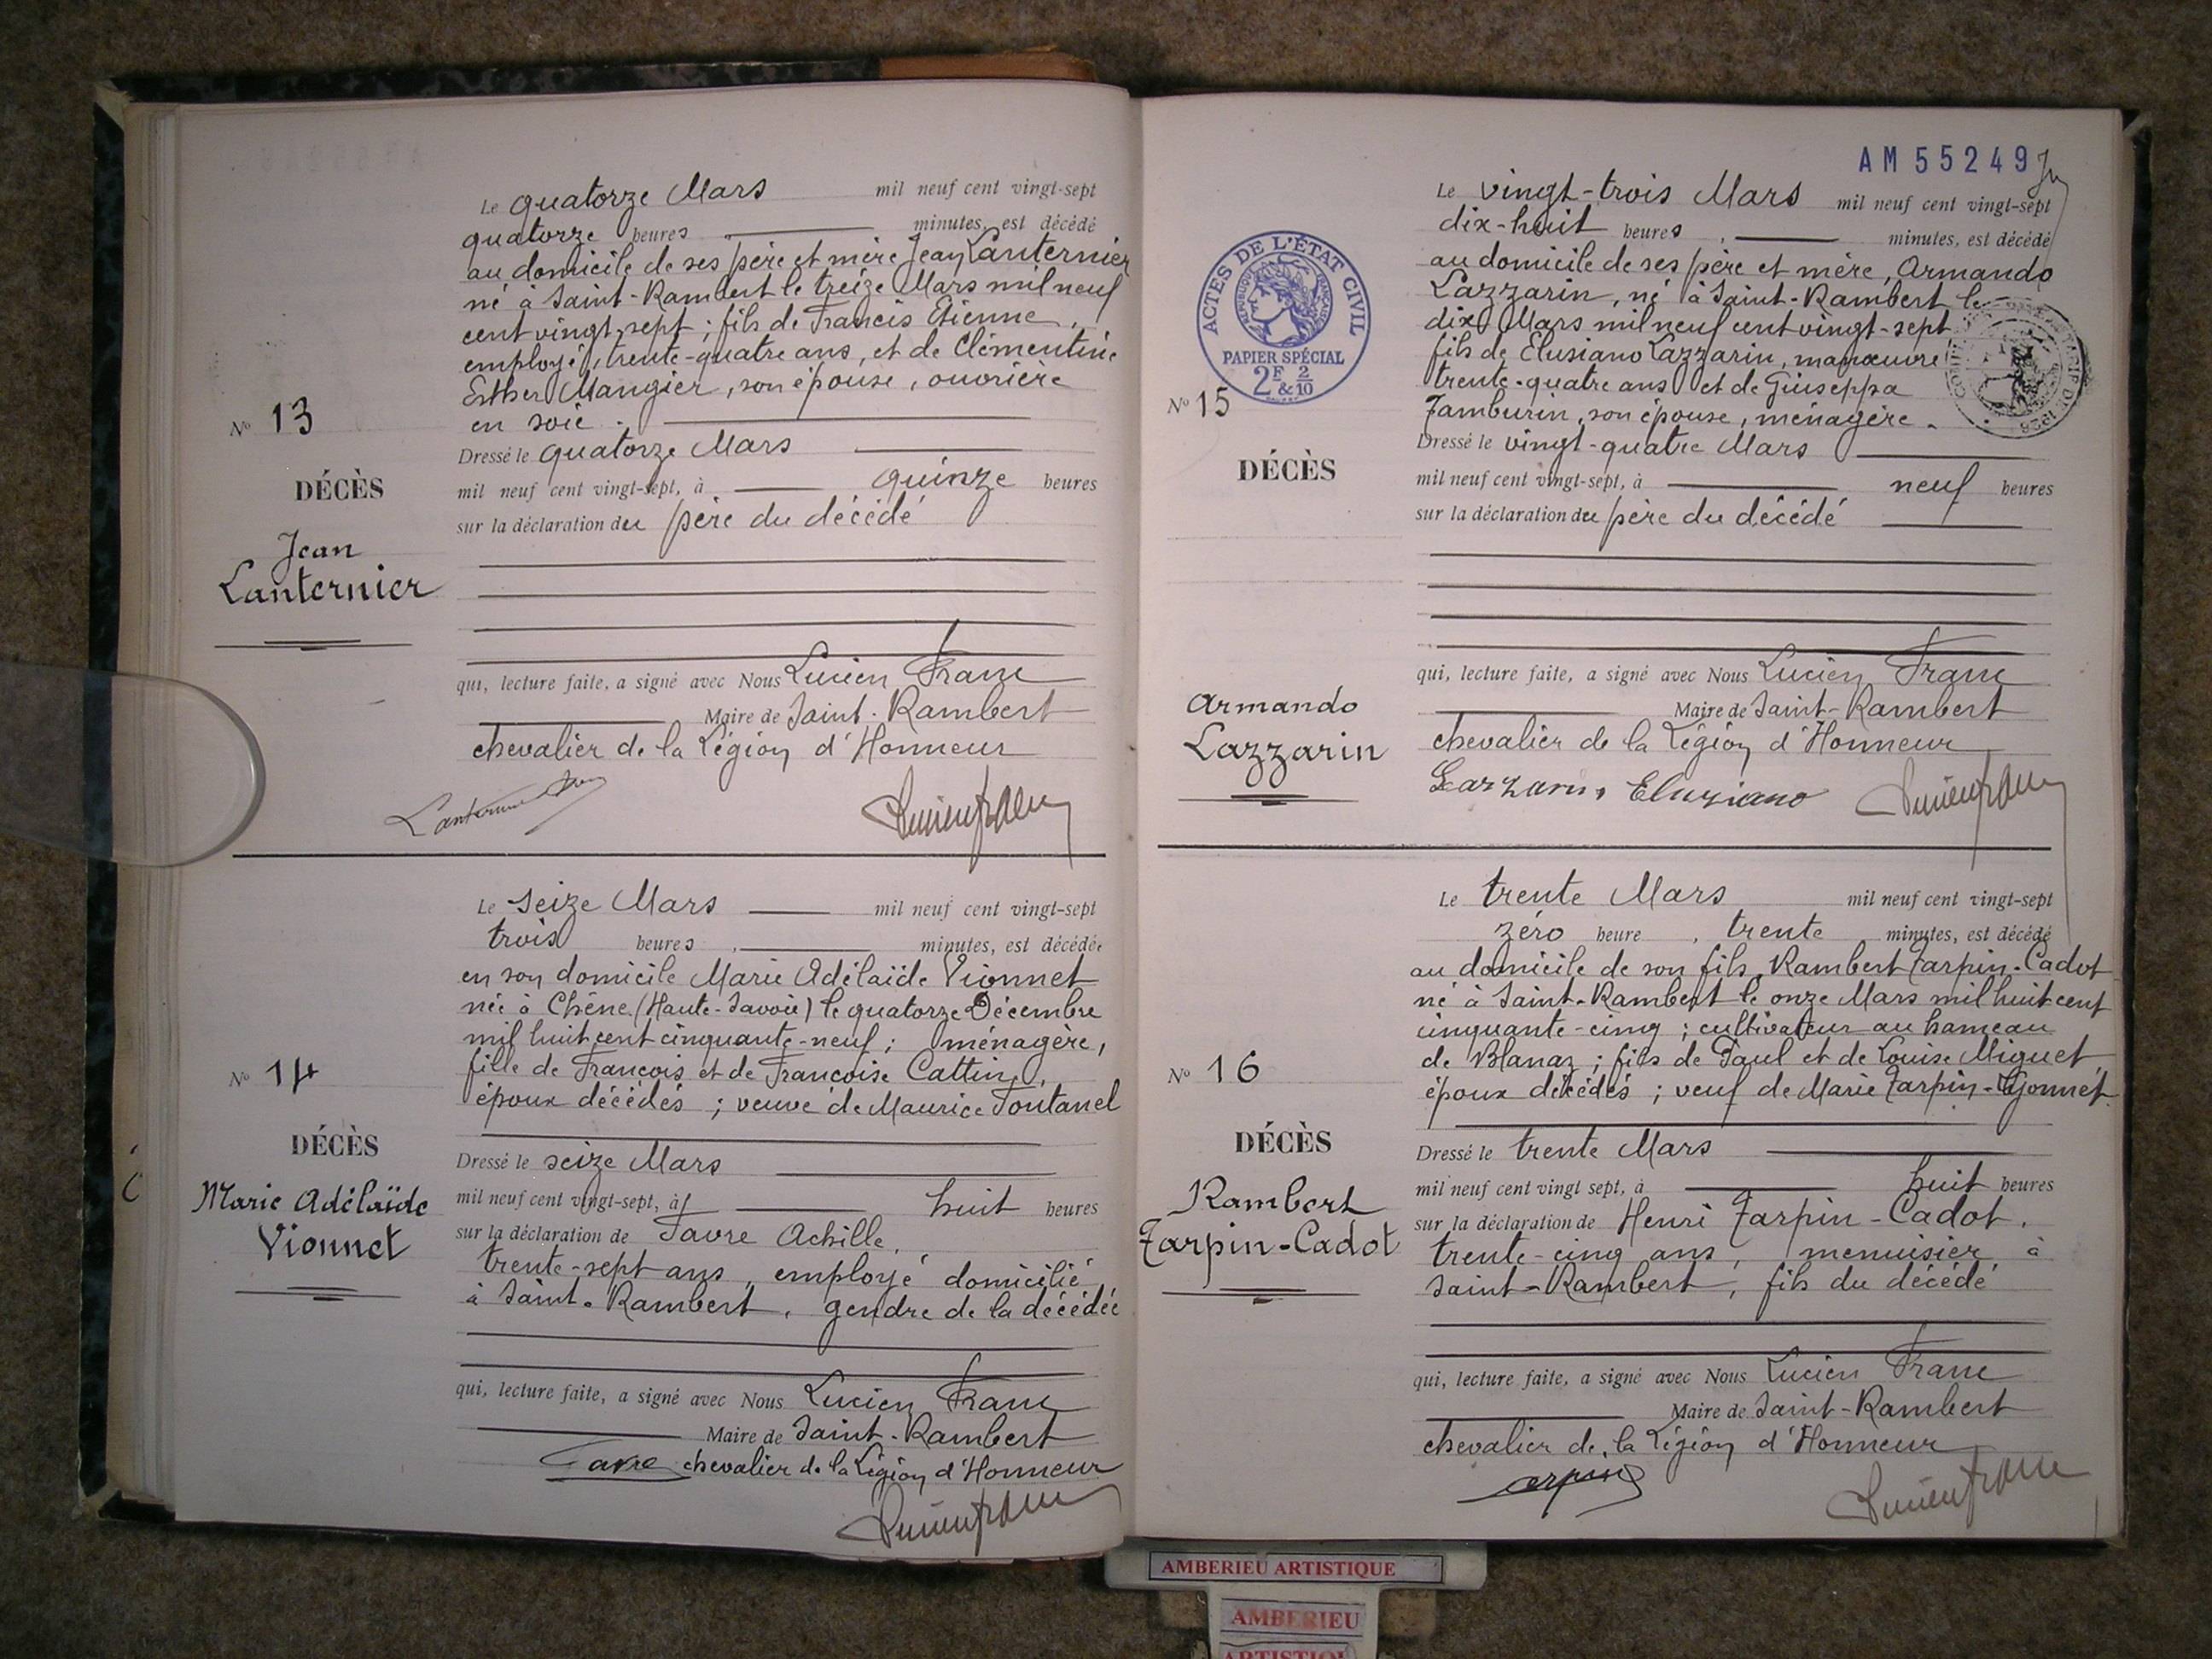 Le quatorze Mars mil neuf cent vingt-sept
quatorze heures minutes, est décédé
au domicile de ses père et mère Jean Lanternier
né à Saint-Rambert le treize Mars mil neuf
cent vingt-sept ; fils de Francis Etienne,
employé, trente-quatre ans, et de Clémentine
Esther Mangier, son épouse, ouvrière
en soie.
Nº 13
DÉCÈS
Jean
Lanternier
Dressé le quatorze Mars
mil neuf cent vingt-sept, à quinze heures
sur la déclaration du père du décédé
qui, lecture faite, a signé avec Nous Lucien Franc
Maire de Saint-Rambert
chevalier de la Légion d'Honneur
Le seize Mars mil neuf cent vingt-sept
trois heures, minutes, est décédée
en son domicile Marie Adélaïde Vionnet
née à Chêne (Haute-Savoie) le quatorze Décembre
mil huit cent cinquante-neuf ; ménagère,
fille de François et de Françoise Cattin,
époux décédés ; veuve de Maurice Fontanel
Nº 14
DÉCÈS
Marie Adélaïde
Vionnet
Dressé le seize Mars
mil neuf cent vingt-sept, à huit heures
sur la déclaration de Favre Achille,
trente-sept ans, employé domicilié
à Saint-Rambert, gendre de la décédée
qui, lecture faite, a signé avec Nous Lucien Franc
Maire de Saint-Rambert
Favre chevalier de la Légion d'Honneur
AM 55249
ACTES DE L'ÉTAT CIVIL
RÉPUBLIQUE FRANÇAISE
PAPIER SPÉCIAL
2F & 2/10
Le vingt-trois Mars mil neuf cent vingt-sept
dix-huit heures, minutes, est décédé
au domicile de ses père et mère, Armando
Lazzarin, né à Saint-Rambert le
dix Mars mil neuf cent vingt-sept
fils de Elusiano Lazzarin, manœuvre
trente-quatre ans et de Giuseppa
Tamburin, son épouse, ménagère.
Nº 15
DÉCÈS
Armando
Lazzarin
Dressé le vingt-quatre Mars
mil neuf cent vingt-sept, à neuf heures
sur la déclaration du père du décédé
qui, lecture faite, a signé avec Nous Lucien Franc
Maire de Saint-Rambert
chevalier de la Légion d'Honneur
Lazzarin Eluziano
Le trente Mars mil neuf cent vingt-sept
zéro heure, trente minutes, est décédé
au domicile de son fils, Rambert Tarpin-Cadot
né à Saint-Rambert le onze Mars mil huit cent
cinquante-cinq ; cultivateur au hameau
de Blanaz ; fils de Paul et de Louise Miguet
époux décédés ; veuf de Marie Tarpin-Lyonnet
Nº 16
DÉCÈS
Rambert
Tarpin-Cadot
Dressé le trente Mars
mil neuf cent vingt sept, à huit heures
sur la déclaration de Henri Tarpin-Cadot,
trente-cinq ans, menuisier à
Saint-Rambert, fils du décédé
qui, lecture faite, a signé avec Nous Lucien Franc
Maire de Saint-Rambert
chevalier de la Légion d'Honneur
AMBERIEU ARTISTIQUE
AMBERIEU
ARTISTIQUE